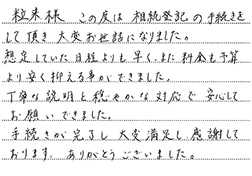 粒来様 この度は相続登記の手続きを
して頂き大変お世話になりました。
想定していた日程よりも早く、また料金も予算
より安く抑える事ができました。
丁寧な説明と穏やかな対応で安心して
お願いできました。
手続きが完了し大変満足し感謝して
おります。ありがとうございました。